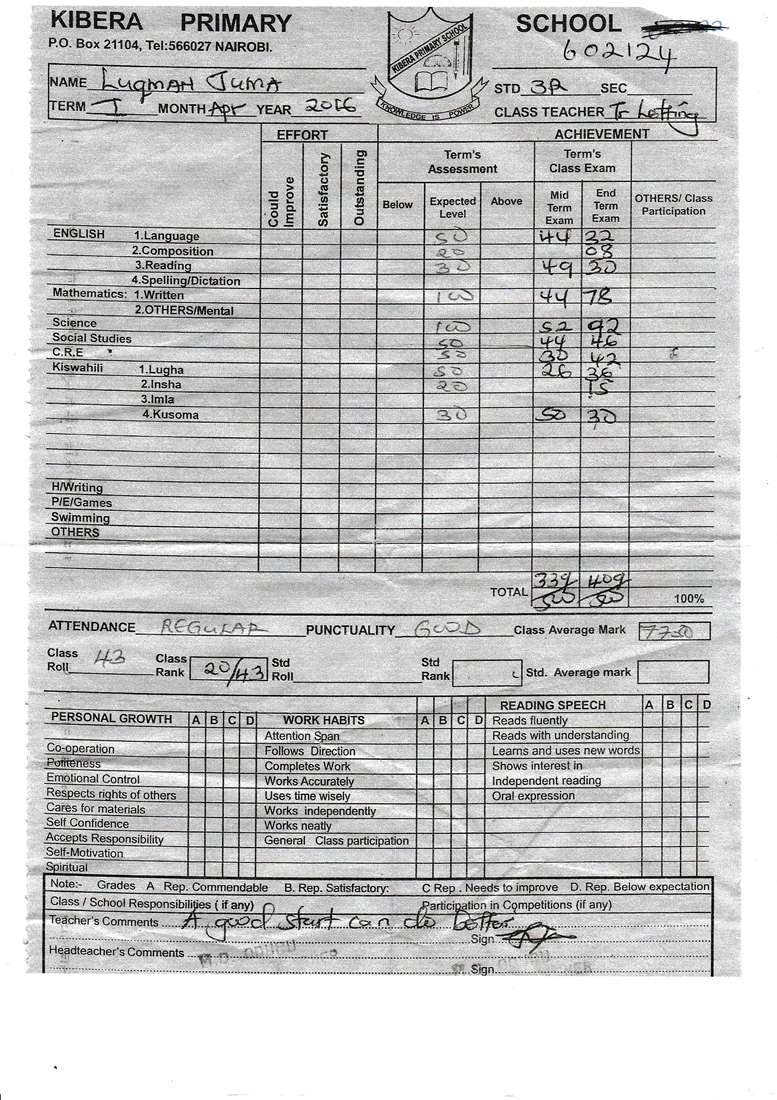 KIBERA PRIMARY SCHOOL
P.O. Box 21104, Tel:566027 NAIROBI.
602124
KIBERA PRIMARY SCHOOL
KNOWLEDGE IS POWER
NAME Luqman Juma STD 3R SEC
TERM I MONTH Apr YEAR 2016 CLASS TEACHER Tr Letting
EFFORT ACHIEVEMENT
Could Improve Satisfactory Outstanding Term's Assessment Term's Class Exam
Below Expected Level Above Mid Term Exam End Term Exam OTHERS/ Class Participation
ENGLISH 1.Language 50 44 32
2.Composition 20 08
3.Reading 30 49 30
4.Spelling/Dictation
Mathematics: 1.Written 100 44 78
2.OTHERS/Mental
Science 100 52 92
Social Studies 50 44 46
C.R.E 50 30 42
Kiswahili 1.Lugha 50 26 36
2.Insha 20 15
3.Imla
4.Kusoma 30 50 30
H/Writing
P/E/Games
Swimming
OTHERS
TOTAL 339/500 409/500 100%
ATTENDANCE REGULAR PUNCTUALITY GOOD Class Average Mark
Class Roll 43 Class Rank 20/43 Std Roll Std Rank Std. Average mark
PERSONAL GROWTH A B C D WORK HABITS A B C D READING SPEECH A B C D
Attention Span Reads fluently
Reads with understanding
Co-operation Follows Direction Learns and uses new words
Politeness Completes Work Shows interest in
Emotional Control Works Accurately Independent reading
Respects rights of others Uses time wisely Oral expression
Cares for materials Works independently
Self Confidence Works neatly
Accepts Responsibility General Class participation
Self-Motivation
Spiritual
Note:- Grades A Rep. Commendable B. Rep. Satisfactory: C Rep . Needs to improve D. Rep. Below expectation
Class / School Responsibilities ( if any) Participation in Competitions (if any)
Teacher's Comments A good start can do better
Sign
Headteacher's Comments
Sign